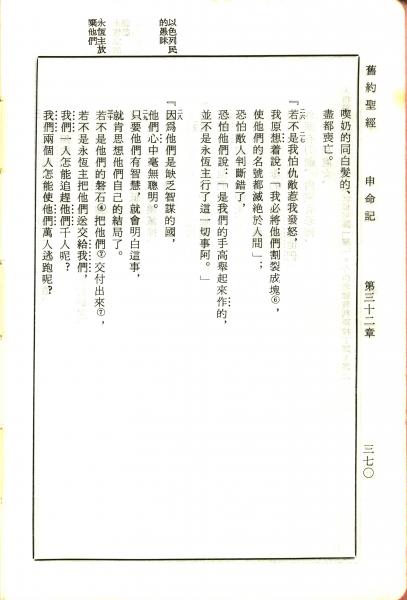 舊約聖經 申命記 第三十二章 三七〇
喫奶的同白髮的、
盡都喪亡。
『若不是我怕仇敵惹我發怒，
我原想着說：「我必將他們割裂成塊⑥，
使他們的名號都滅絕於人間」；
恐怕敵人判斷錯了，
恐怕他們說：「是我們的手高舉起來作的，
並不是永恆主行了這一切事阿。」
以色列民
的愚昧
『因爲他們是缺乏智謀的國，
他們心中毫無聰明。
只要他們有智慧，就會明白這事，
就肯思想他們自己的結局了。
永恆主放
棄他們
若不是他們的磐石⑧把他們⑦交付出來⑦，
若不是永恆主把他們送交給我們，
我們一人怎能追趕他們千人呢？
我們兩個人怎能使他們萬人逃跑呢？